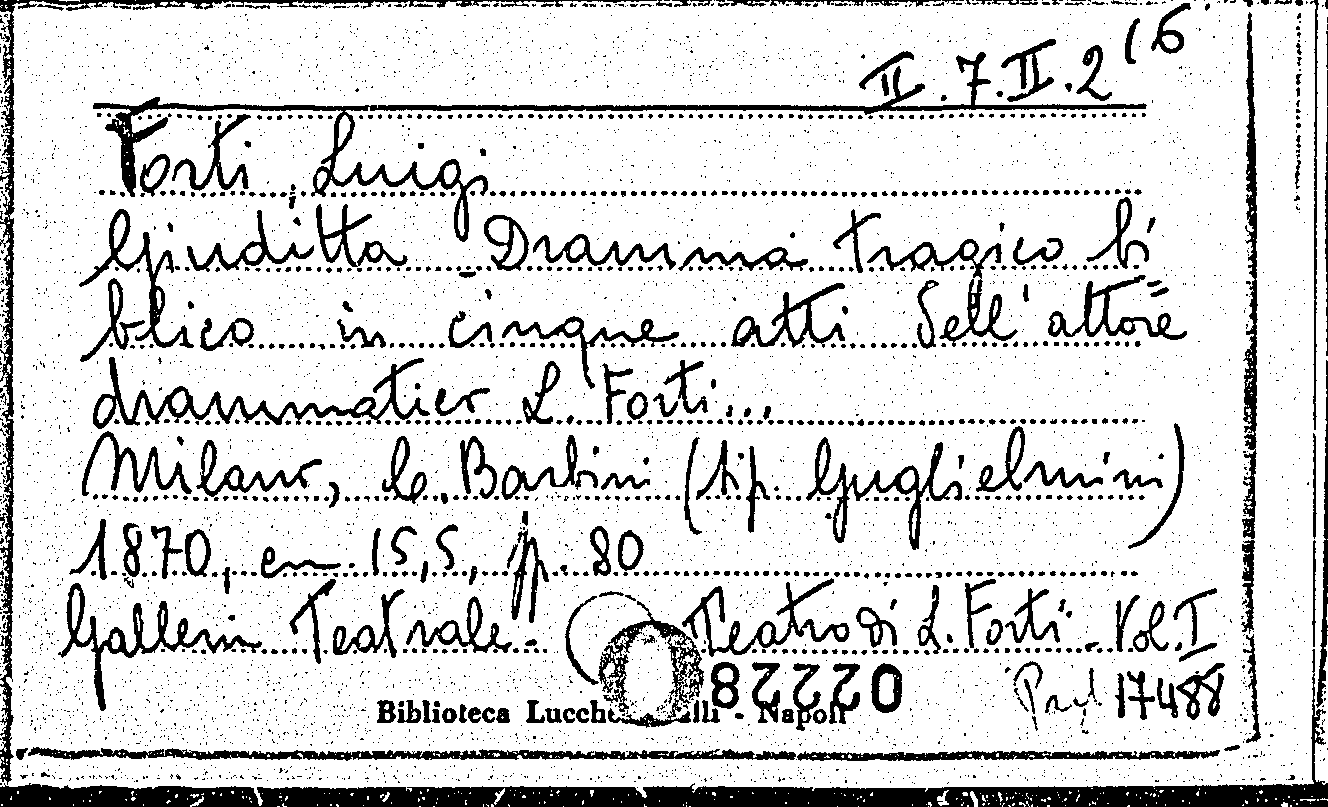 II.7.II.2(6
Forti, Luigi
Giuditta - Dramma tragico bi
blico in cinque atti dell'attore
drammatico L. Forti...
Milano, C. Barbini (tip. Guglielmini)
1870, cm. 15,5, pp. 80
Galleria Teatrale - Teatro di L. Forti - Vol. I
02228
17488
Biblioteca Lucchesi - Napoli